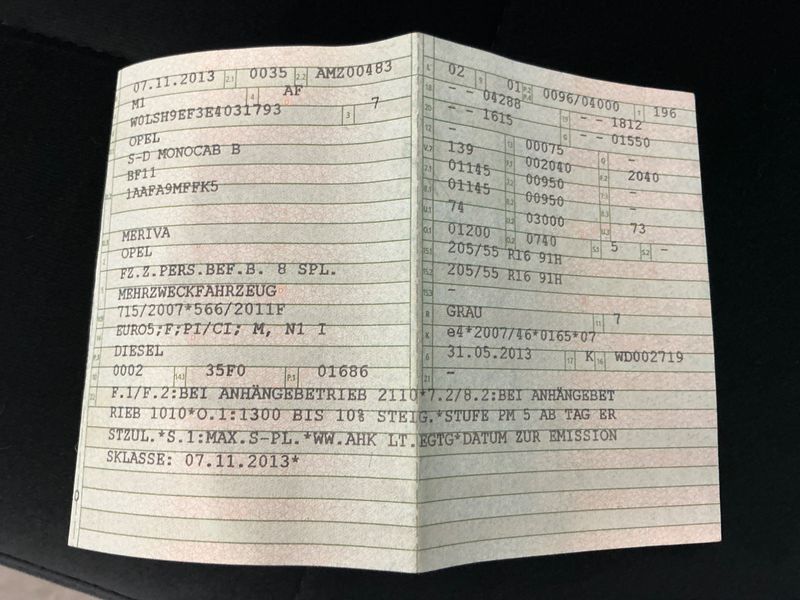 07.11.2013 2.1 0035 2.2 AMZ00483
M1 4 AF
W0LSH9EF3E4031793 3 7
OPEL
S-D MONOCAB B
BF11
1AAFA9MFFK5
MERIVA
OPEL
FZ.Z.PERS.BEF.B. 8 SPL.
MEHRZWECKFAHRZEUG
715/2007*566/2011F
EURO5;F;PI/CI; M, N1 I
DIESEL
0002 14.1 35F0 P.1 01686
L 02 9 01 P.2 P.4 0096/04000 T 196
18 - - 04288 19 - - 1812
20 - - 1615 G - - 01550
12 - 13 00075 Q -
V.7 139 F.1 002040 F.2 2040
7.1 01145 7.2 00950 7.3 -
8.1 01145 8.2 00950 8.3 -
U.1 74 U.2 03000 U.3 73
O.1 01200 O.2 0740 S.1 5 S.2 -
15.1 205/55 R16 91H
15.2 205/55 R16 91H
15.3 -
R GRAU 11 7
K e4*2007/46*0165*07
6 31.05.2013 17 K 16 WD002719
21 -
22 F.1/F.2:BEI ANHÄNGEBETRIEB 2110*7.2/8.2:BEI ANHÄNGEBET
RIEB 1010*O.1:1300 BIS 10% STEIG.*STUFE PM 5 AB TAG ER
STZUL.*S.1:MAX.S-PL.*WW.AHK LT.EGTG*DATUM ZUR EMISSION
SKLASSE: 07.11.2013*